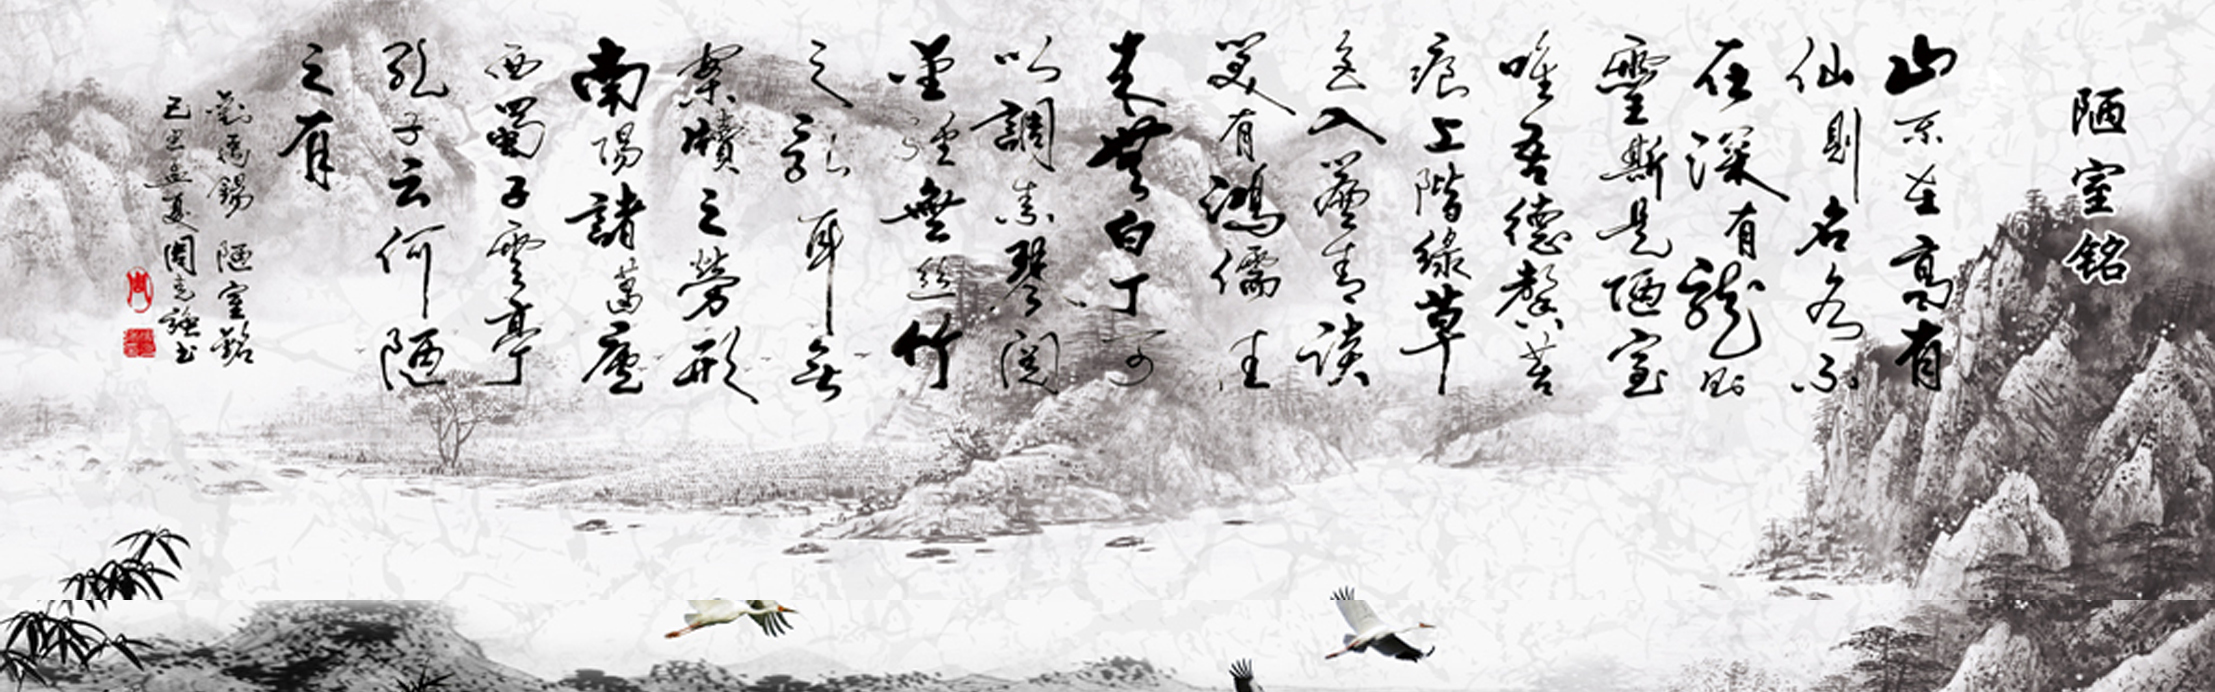 陋室铭
山不在高有
仙則名水不
在深有龍則
靈斯是陋室
唯吾德馨苔
痕上階綠草
色入簾青談
笑有鴻儒往
来無白丁可
以調素琴閱
金經無絲竹
之亂耳無
案牘之勞形
南陽諸葛廬
西蜀子雲亭
孔子云何陋
之有
劉禹錫 陋室銘
己丑孟夏周克強书